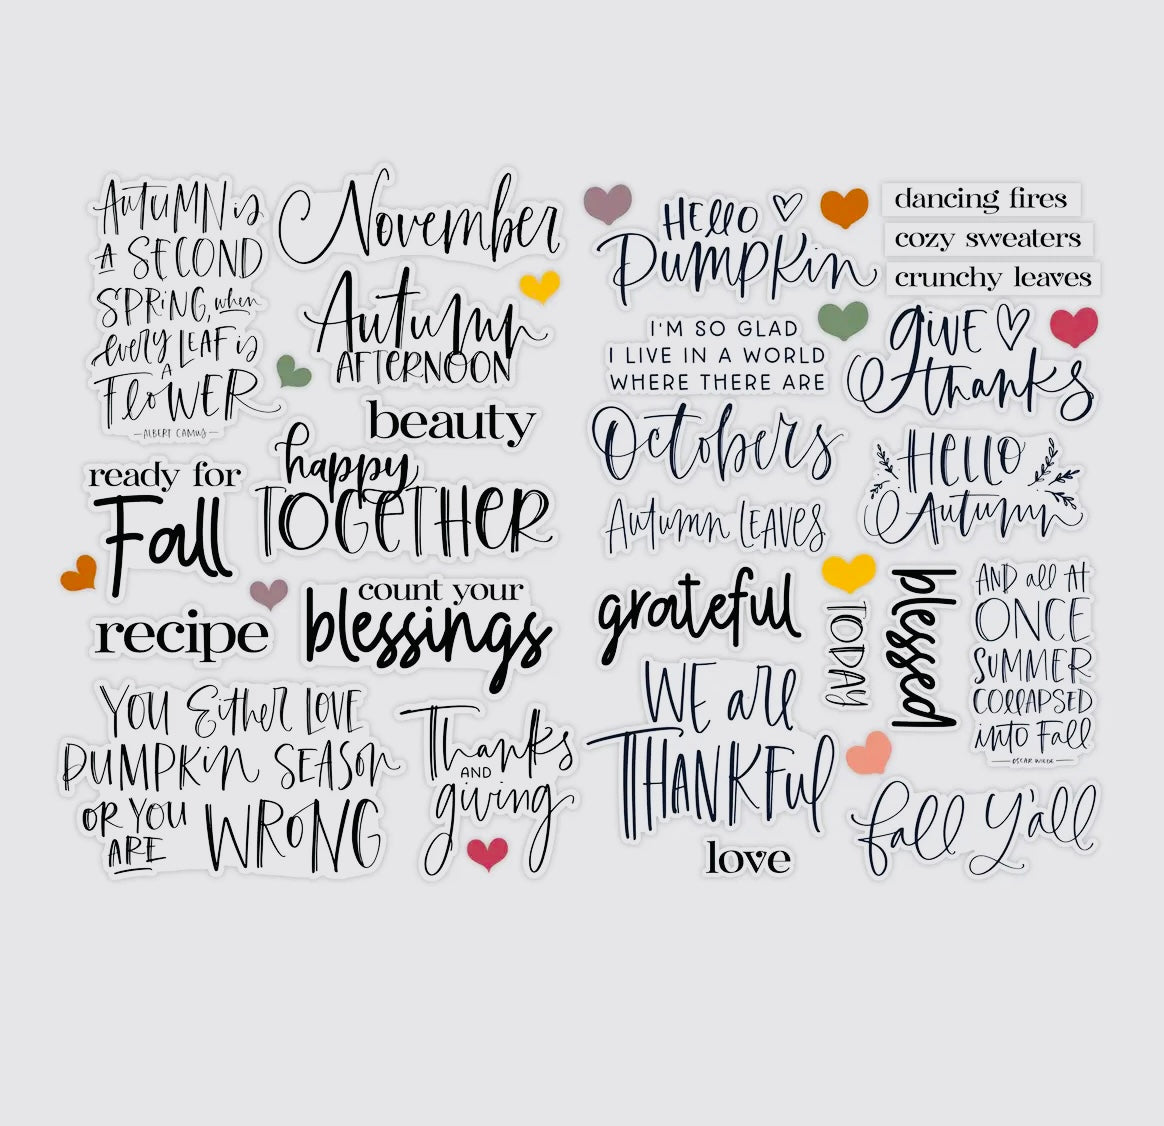 AUTUMN is
A SECOND
SPRING, when
every LEAF is
A
FLOWER
— ALBERT CAMUS —
November
Autumn
AFTERNOON
beauty
ready for
Fall
happy
TOGETHER
recipe
count your
blessings
YOU Either LOVE
PUMPKin SEASon
OR YOU
ARE WRONG
Thanks
AND
giving
HEllo
Pumpkin
dancing fires
cozy sweaters
crunchy leaves
I'M SO GLAD
I LIVE IN A WORLD
WHERE THERE ARE
Octobers
giVE
thanks
HELLO
Autumn
Autumn LEAVES
grateful
TODAY
blessed
AND all AT
ONCE
SUMMER
COllAPSED
into Fall
— OSCAR WILDE —
WE arE
THANKFul
love
fall y'all